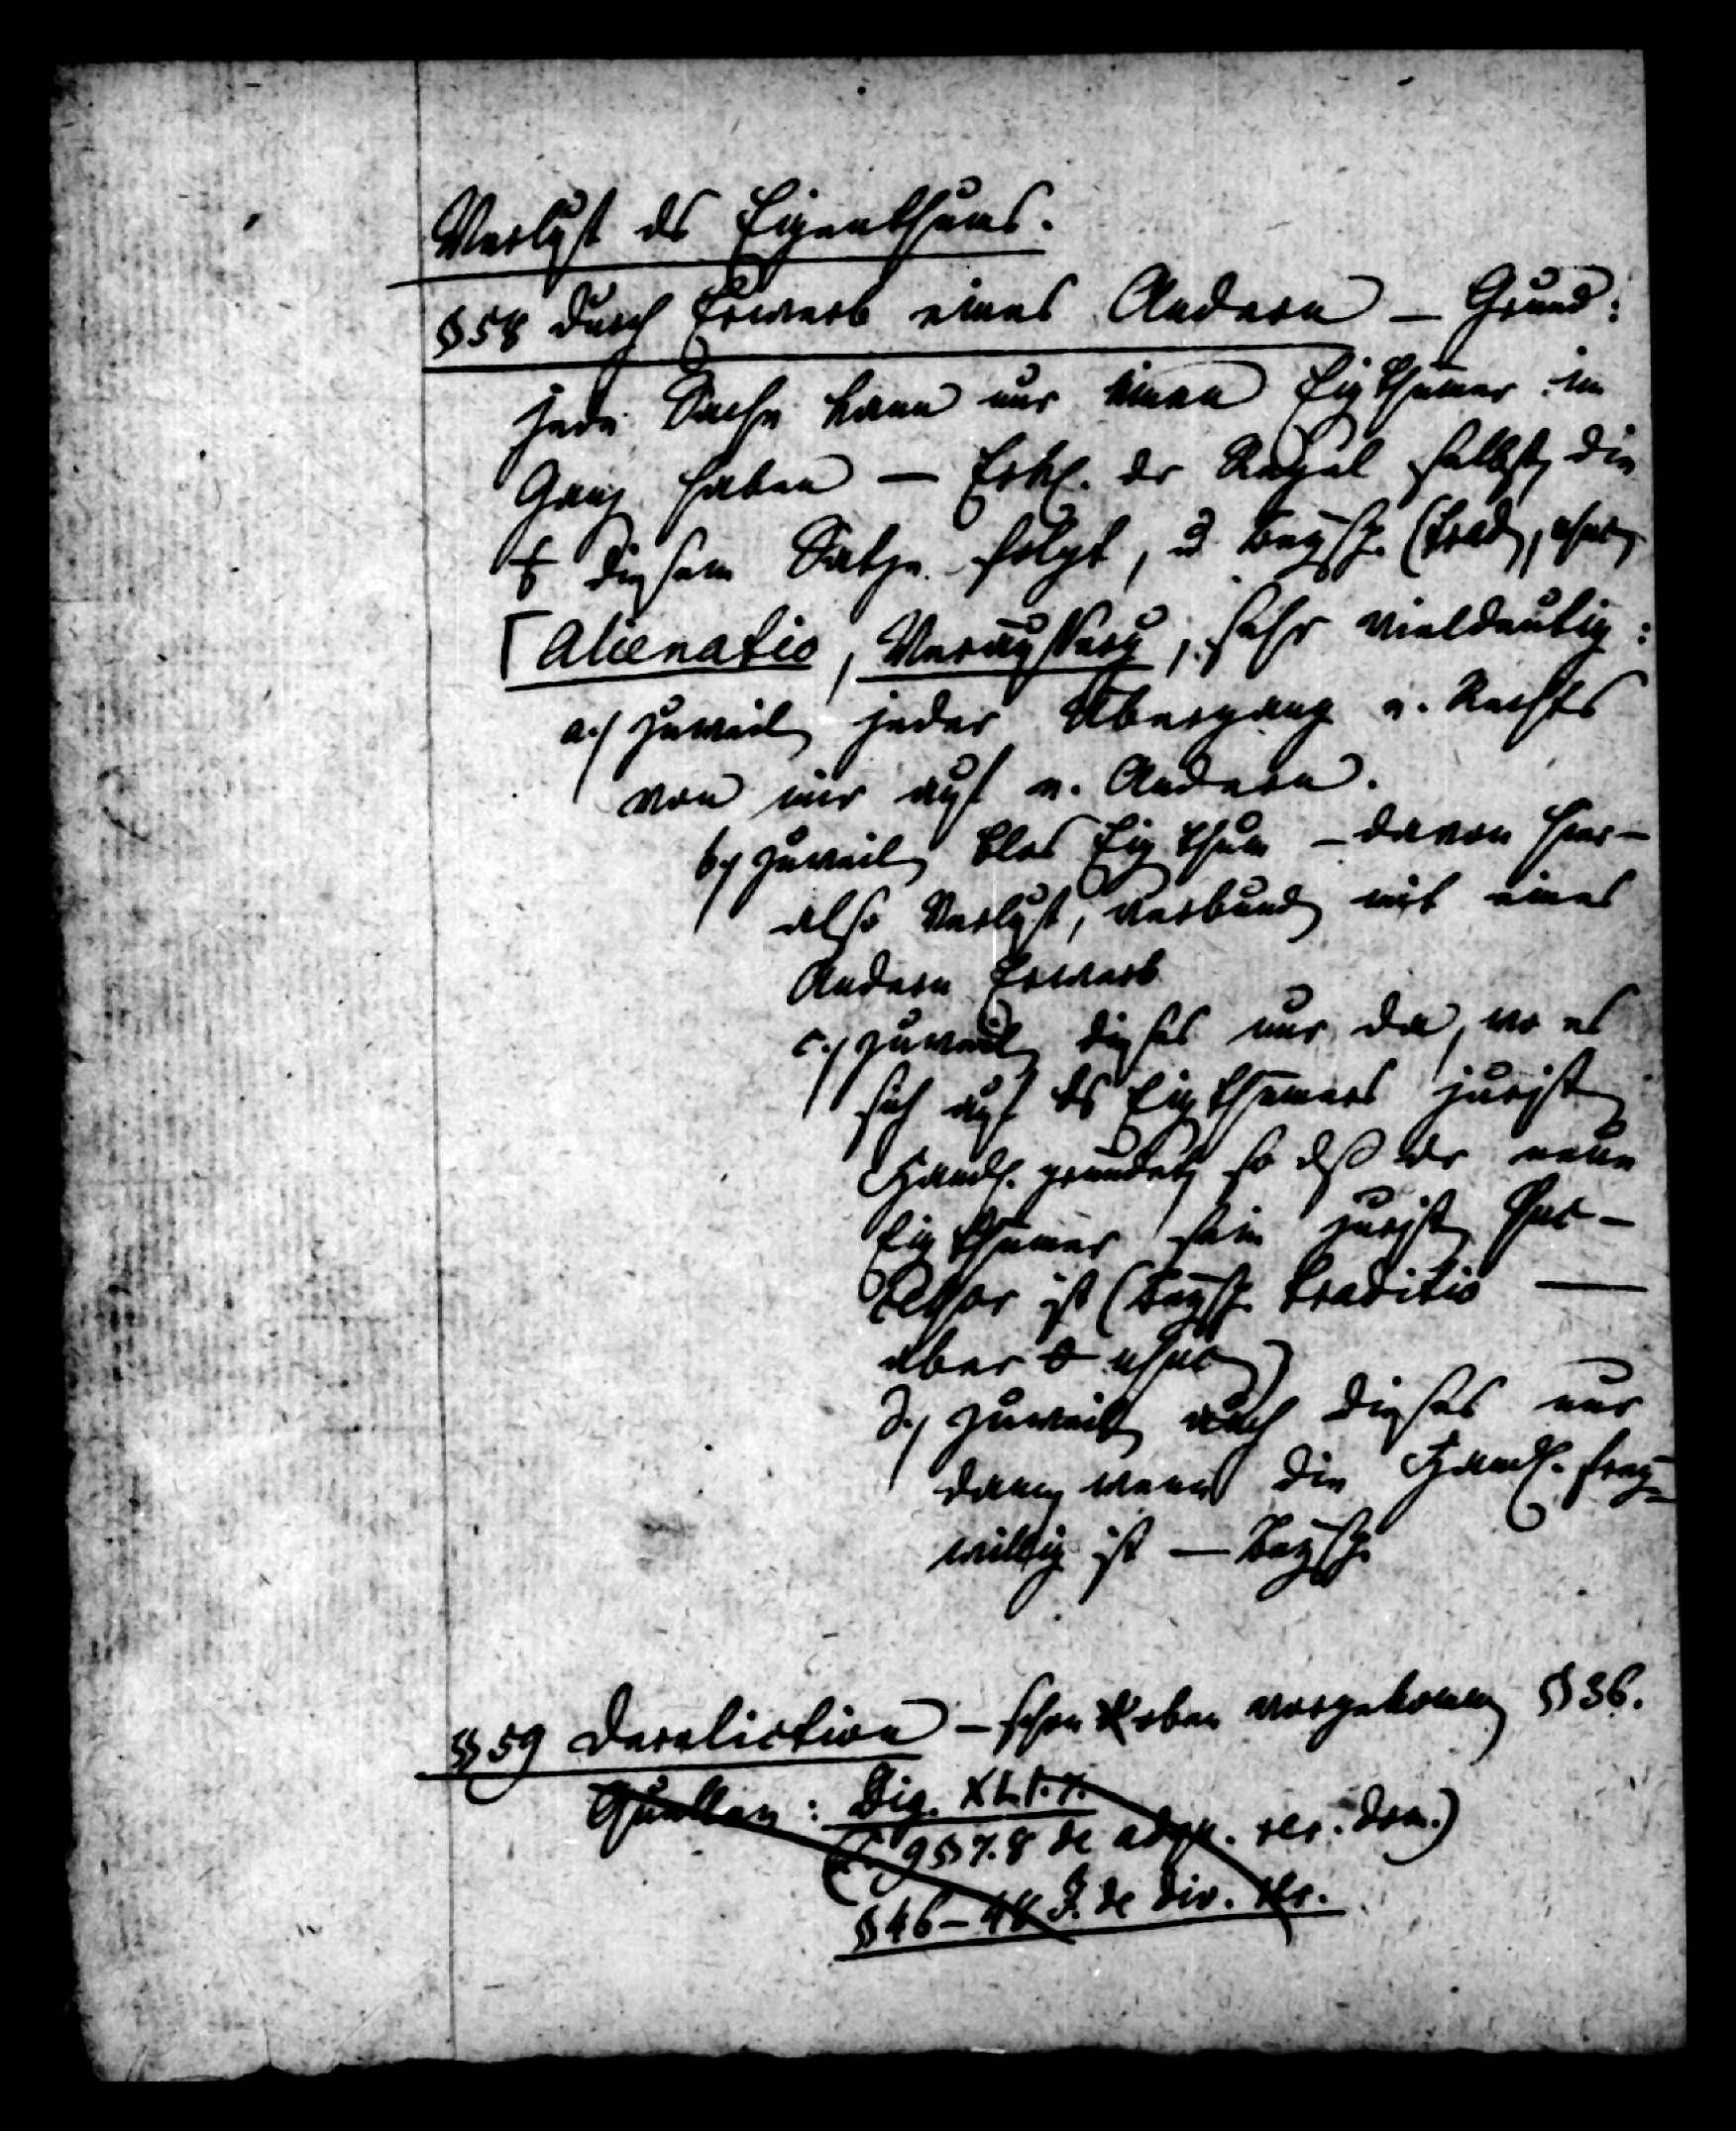 Verlust ds Eigenthums.
§58 durch Erwerb eines Andern – Grund:
jede Sache kann nur einen Eigthümer im
Ganz haben – Erkl. dr Regel selbst, die
diesem Satze folgt, u. Beysp. (trad,
[Alienatio, Veräusserg, sehr vieldeutig:
a.) zuweil jeder Übergang e. Rechts
von mir auf e. Andern.
b.) zuweil blos Eigthum – davon hier –
also Verlust, verbund mit eines
Andern Erwerb
c.) zuweil dieses nur da, wo es
sich auf ds Eigthümers jurist
Handl. gründet, so dß dr neue
Eigthümer sein jurist Suc-
cessor ist (Beysp. traditio –
aber
d.) zuweil auch dieses nur
dann wenn die Handl. frey-
willig ist – Beysp.
§59 Dereliction – schon oben vorgekomm §36.
Quellen: Dig. XLI.
9 §7.8 de adqu. rer. dom.)
§46–48 J. de div. rer.